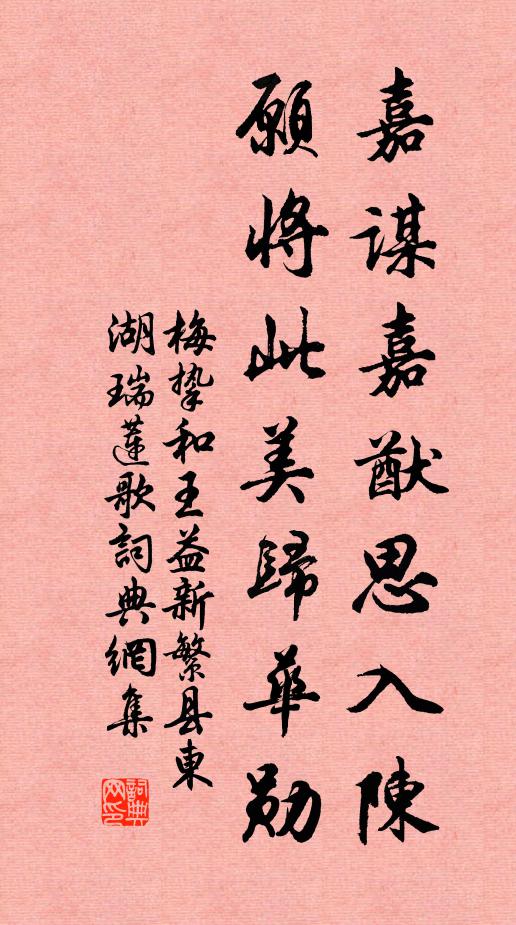 嘉謀嘉猷思入陳
願將此美歸華勛
梅摯和王益新繁县東
湖瑞蓮歌詞典網集
詞典
网印